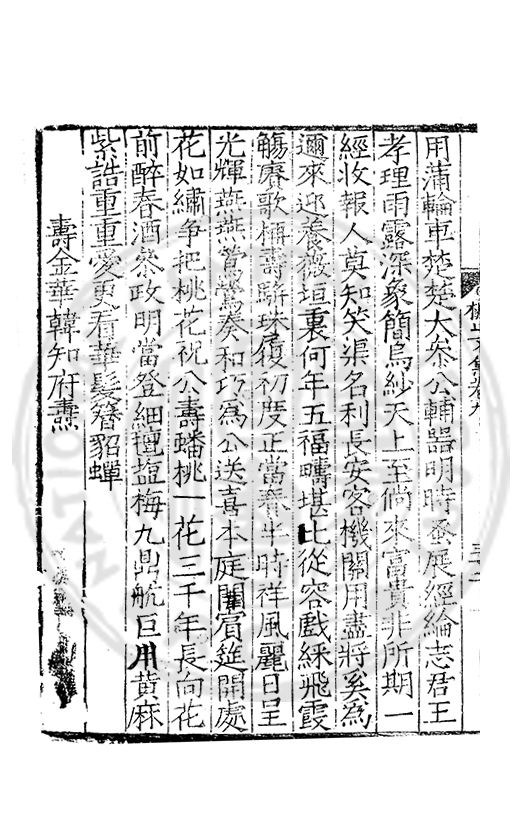 用蒲輪車楚楚大參公輔器明時蚤展經綸志君王
孝理雨露深象簡烏紗天上至倘來富貴非所期一
經收報人莫知笑渠名利長安客機關用盡將奚為
邇來迎養薇垣裏何年五福疇堪比從容戲綵飛霞
觴賡歌稱壽躋珠履初度正當春半時祥風麗日呈
光輝燕燕鶯鶯奏和巧為公送喜本庭闈賓筵開處
花如繡爭把桃花祝公壽蟠桃一花三千年長向花
前醉春酒泰政明當登細氊塩梅九鼎航巨用黄麻
紫誥重重愛更看華髮簪貂蟬
壽金華韓知府燾